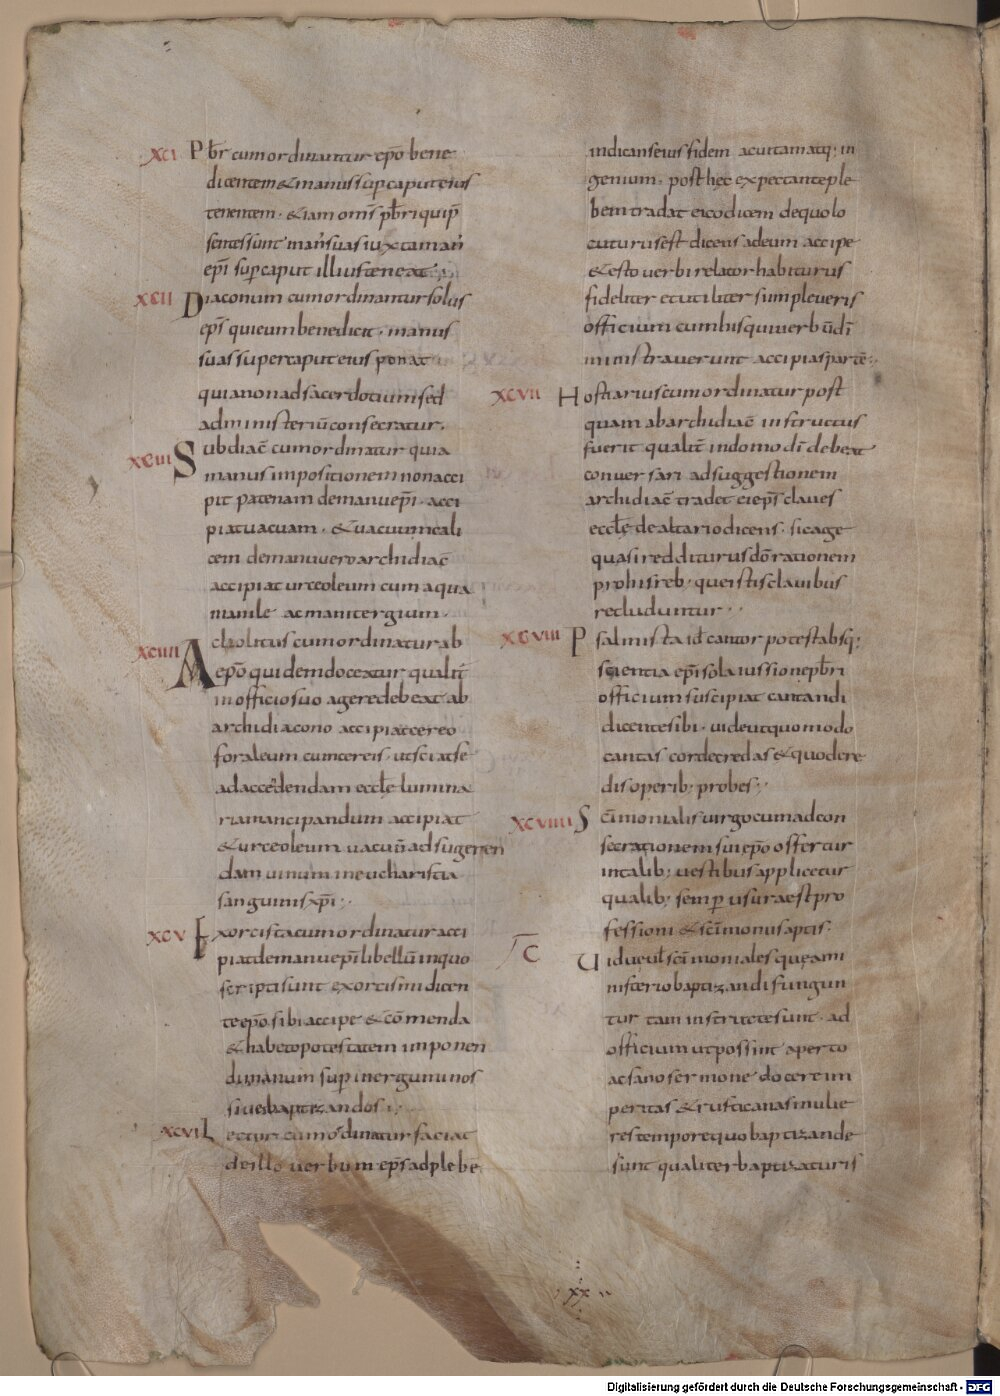 xci Pbr cum ordinantur epo bene
dicentem & manus sup caput eius
tenentem · &iam oms pbri qui p
sentes sunt man suas iuxta man
epi sup caput illius teneat
xcii Diaconum cum ordinantur solus
eps qui eum benedicit · manus
suas super caput eius ponat
quia non ad sacerdotium sed
ad ministeriu consecratur ·
xciii Subdiac cum ordinatur quia
manus impositionem non acci
pit patenam de manu epi · acci
piat uacuam · & uacuum cali
cem de manu uero archidiac
accipiat urceoleum cum aqua
manile ac manitergium ·
xciiii Acholitus cum ordinatur ab
epo quidem doceatur qualit
in officio suo agere debeat ab
archidiacono accipiat cereo
foraleum cum cereis · ut sciat se
ad accedendam eccle lumina
ria mancipandum accipiat
& urceoleum uacuu ad sugeren
dam uinum in eucharistia
sanguinis xpi ·
xcv Exorcista cum ordinatur acci
piat de manu epi libellu in quo
scripti sunt exorcismi dicen
te epo sibi accipe & comenda
& habeto potestatem imponen
di manum sup inerguminos
siue baptizandos ·
xcvi Lector cum ordinatur faciat
de illo uerbum eps ad plebe
indicans eius fidem ac uitam atq; in
genium · post hec expectante ple
bem tradat ei codicem de quo lo
cuturus est dicens ad eum accipe
& esto uerbi relator habiturus
fideliter et utiliter sim pleueris
officium cum his qui uerbu di
ministrauerunt accipias parte ·
xcvii Hostiarius cum ordinatur post
quam ab archidiac instructus
fuerit qualit in domo di debeat
conuersari ad suggestionem
archidiac tradet ei eps claues
eccle de altario dicens · sic age
quasi redditurus do rationem
pro his reb; que istis clauibus
recluduntur ·
xcviii Psalmista id cantor potest absq;
scientia epi sola iussione pbri
officium suscipiat cantandi
dicente sibi · uide ut quo modo
cantas corde credas & quod cre
dis operib; probes ·
xcviiii Scimonialis uirgo cum ad con
secrationem sui epo offertur
in talib; uestibus applicetur
qualib; semp usura est pro
fessioni & scimonius aptis ·
C Uidue ul sci moniales que ami
nisterio baptizandi fungun
tur tam instructe sunt · ad
officium ut possint aperto
ac sano sermone docere im
peritas & rusticanas mulie
res tempore quo baptizande
sunt qualiter baptizaturis
xx
Digitalisierung gefördert durch die Deutsche Forschungsgemeinschaft - DFG